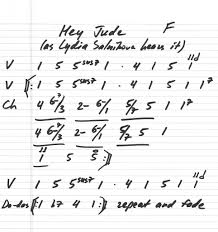 Hey Jude F
(as Lydia Salnikova hears it)
V 1 5 5sus7 1 · 4 1 5 1 11d
V 𝄆: 1 5 5sus7 1 · 4 1 5 1 1⁷
Ch 4 6⁷/3 2- 6/1 5/7 5 1 1⁷
4 6⁷/3 2- 6/1 5/7 5 1
1 5 5 :||
V 1 5 5sus7 1 · 4 1 5 1 11d
Da-das ||: 1 b7 4 1 :|| repeat and fade